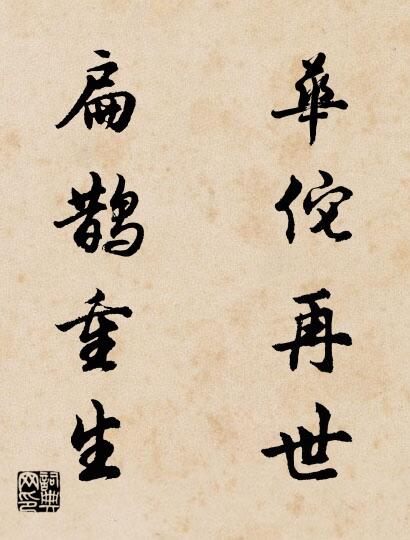 華佗再世
扁鵲重生
詞典网印